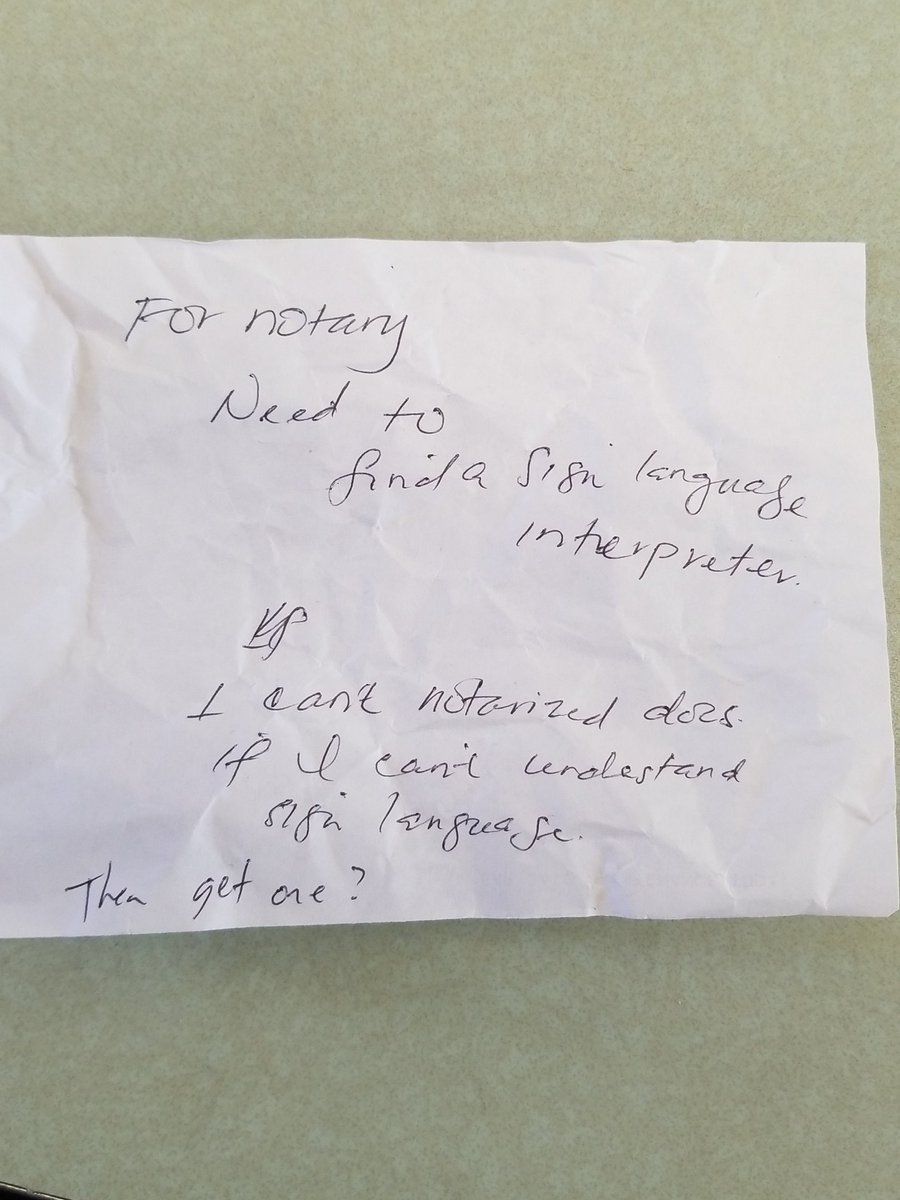 For notary
Need to
find a sign language
interpreter.
I can't notarized docs.
if I can't undestand
sign language.
Then get one?